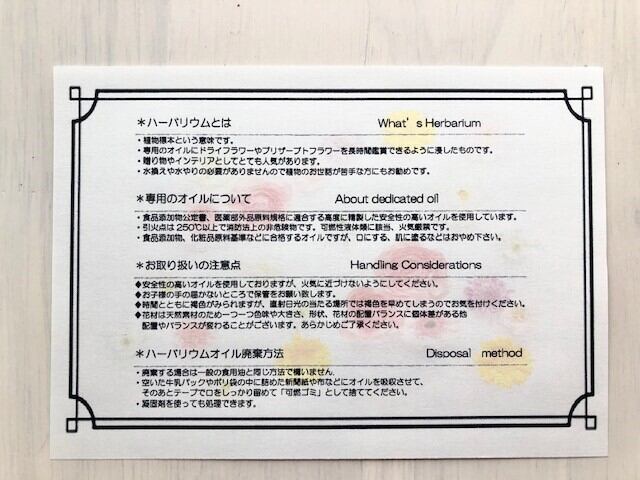 ＊ハーバリウムとは What's Herbarium
・植物標本という意味です。
・専用のオイルにドライフラワーやプリザーブトフラワーを長時間鑑賞できるように浸したものです。
・贈り物やインテリアとしてとても人気があります。
・水換えや水やりの必要がありませんので植物のお世話が苦手な方にもお勧めです。
＊専用のオイルについて About dedicated oil
・食品添加物公定書、医薬部外品原料規格に適合する高度に精製した安全性の高いオイルを使用しています。
・引火点は250℃以上で消防法上の非危険物です。可燃性液体類に該当、火気厳禁です。
・食品添加物、化粧品原料基準などに合格するオイルですが、口にする、肌に塗るなどはおやめ下さい。
＊お取り扱いの注意点 Handling Considerations
◆安全性の高いオイルを使用しておりますが、火気に近づけないようにしてください。
◆お子様の手の届かないところで保管をお願い致します。
◆時間とともに褐色がみられますが、直射日光の当たる場所では褐色を早めてしまうのでお気を付けください。
◆花材は天然素材のため一つ一つ色味や大きさ、形状、花材の配置バランスに個体差がある他
配置やバランスが変わることがございます。あらかじめご了承ください。
＊ハーバリウムオイル廃棄方法 Disposal method
・廃棄する場合は一般の食用油と同じ方法で構いません。
・空いた牛乳パックやポリ袋の中に詰めた新聞紙や布などにオイルを吸収させて、
そのあとテープで口をしっかり留めて「可燃ゴミ」として捨ててください。
・凝固剤を使っても処理できます。